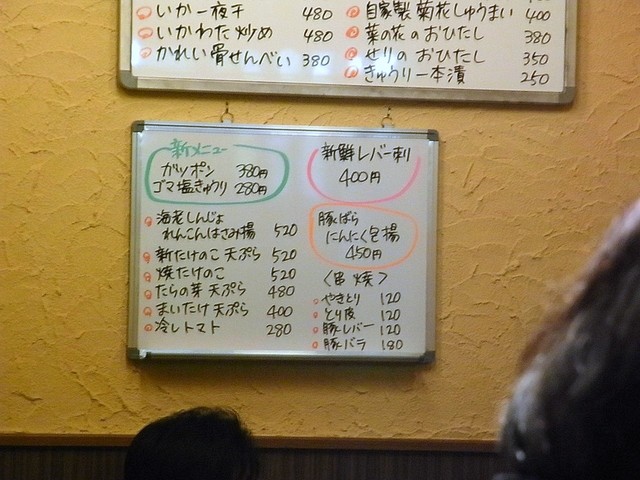 いか一夜干 480
いかわた炒め 480
かれい骨せんべい 380
自家製 菊花しゅうまい 400
菜の花のおひたし 380
せりのおひたし 350
きゅうり一本漬 250
新メニュー
ガツポン 380円
ゴマ塩きゅうり 280円
海老しんじょ
れんこんはさみ揚 520
新たけのこ 天ぷら 520
焼たけのこ 520
たらの芽 天ぷら 480
まいたけ 天ぷら 400
冷しトマト 280
新鮮レバー刺
400円
豚ばら
にんにく包揚
450円
〈串焼〉
やきとり 120
とり皮 120
豚レバー 120
豚バラ 180